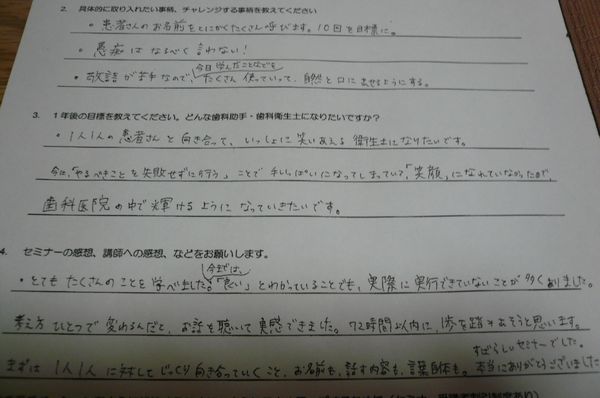 2. 具体的に取り入れたい事柄、チャレンジする事柄を教えてください
・患者さんのお名前をとにかくたくさん呼びます。10回を目標に。
・愚痴はなるべく言わない!
今日学んだことなども
・敬語が苦手なので、たくさん使っていって、自然と口に出せるようにする。
3. 1年後の目標を教えてください。どんな歯科助手・歯科衛生士になりたいですか?
・1人1人の患者さんと向き合って、いっしょに笑いあえる衛生士になりたいです。
今は、「やるべきことを失敗せずに行う」ことで手いっぱいになってしまっていて、「笑顔」になれていなかったので、
歯科医院の中で輝けるようになっていきたいです。
4. セミナーの感想、講師への感想、などをお願いします。
今までは、
・とてもたくさんのことを学べました。「良い」とわかっていることでも、実際に実行できていないことが多くありました。
考え方ひとつで変わるんだと、お話を聴いて実感できました。72時間以内に、1歩を踏み出そうと思います。
すばらしいセミナーでした。
まずは1人1人に対してじっくり向き合っていくこと、お名前も、話す内容も、言葉自体も。本当にありがとうございました